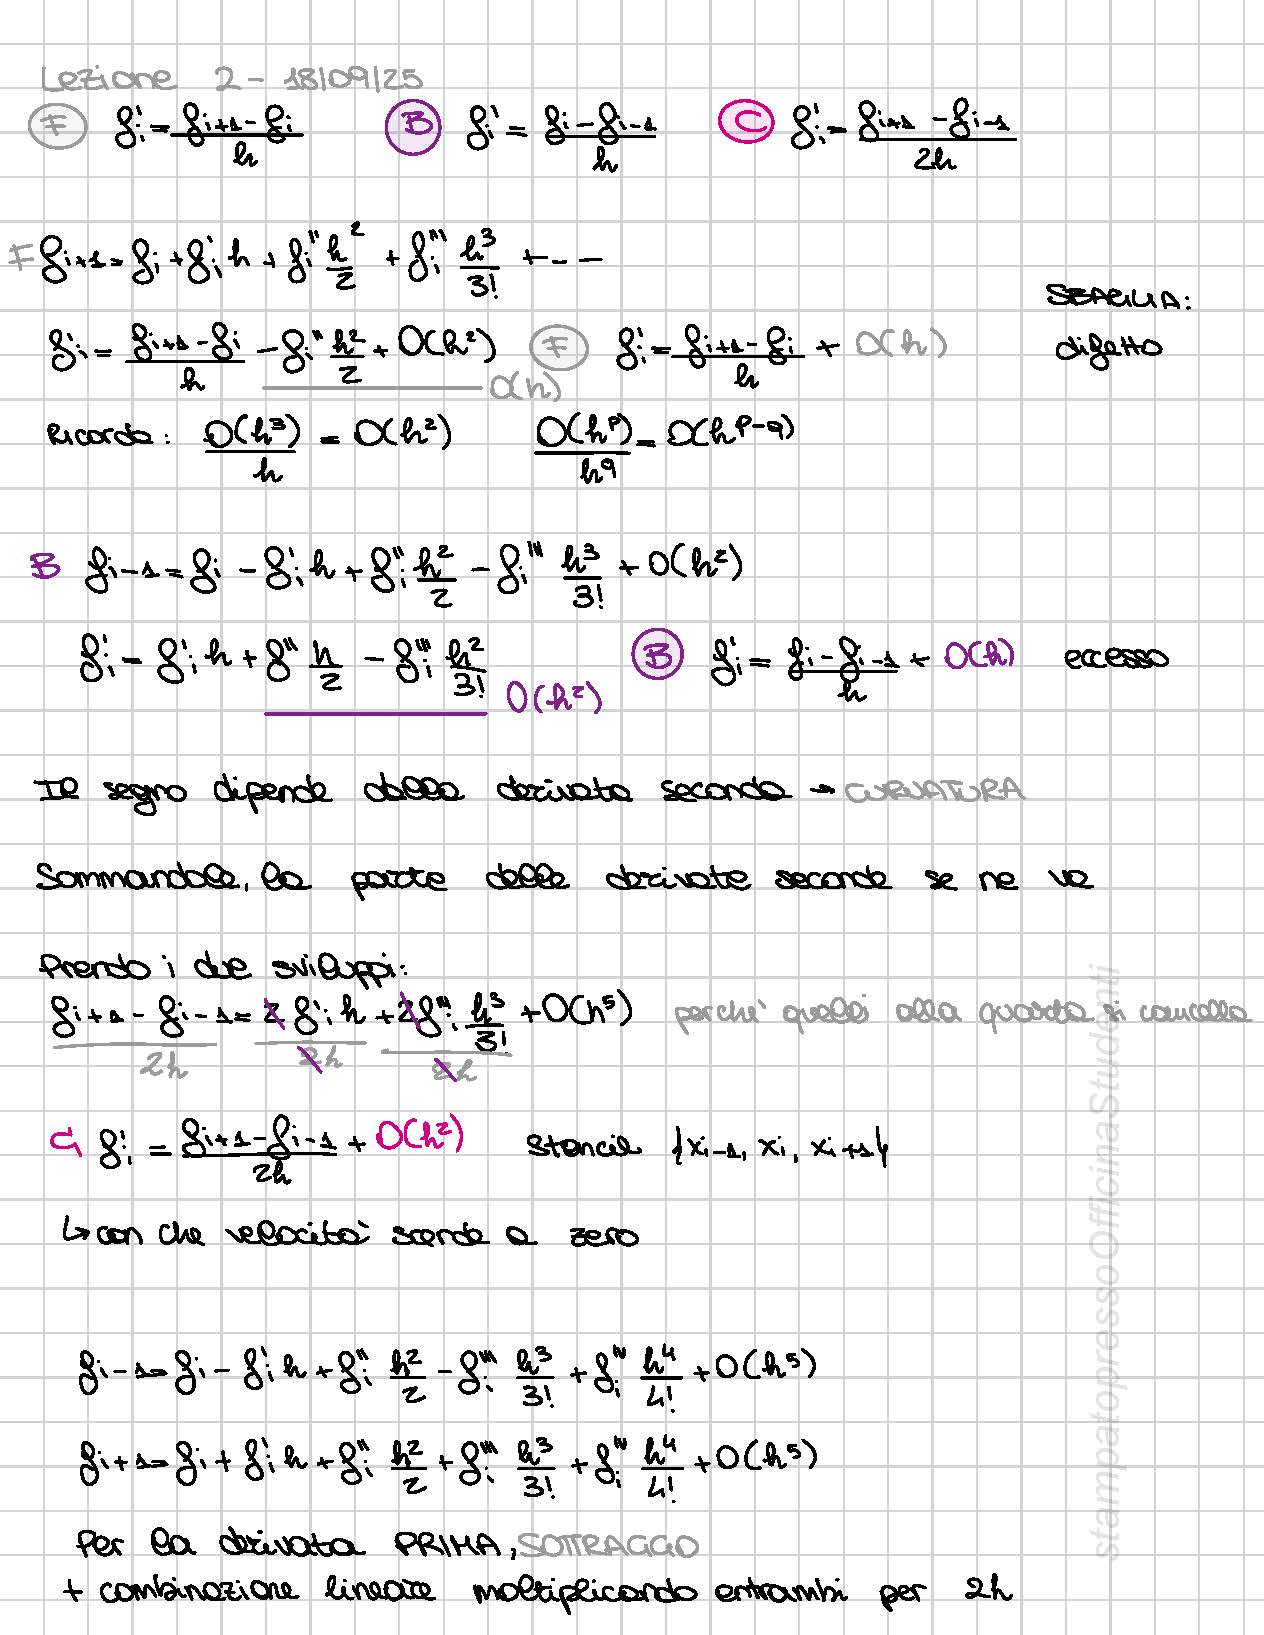 Lezione 2 - 18/09/25
F f'i = (fi+1 - fi)/h   B f'i = (fi - fi-1)/h   C f'i = (fi+1 - fi-1)/2h
F fi+1 = fi + f'i h + f''i h²/2 + f'''i h³/3! + ---
SBAGLIA:
f'i = (fi+1 - fi)/h - f''i h²/2 + O(h²)   O(h)   F f'i = (fi+1 - fi)/h + O(h)   difetto
Ricorda: O(h³)/h = O(h²)   O(h^p)/h^q = O(h^p-q)
B fi-1 = fi - f'i h + f''i h²/2 - f'''i h³/3! + O(h²)
f'i - f'i h + f'' h/2 - f'''i h²/3!   O(h²)   B f'i = (fi - fi-1)/h + O(h)   eccesso
Il segno dipende dalla derivata seconda → CURVATURA
Sommandole, la parte delle derivate seconde se ne va
Prendo i due sviluppi:
fi+1 - fi-1 = 2 f'i h + 2 f'''i h³/3! + O(h⁵)   perché quelli alla quarta si cancella
2h   2h   2h
C f'i = (fi+1 - fi-1)/2h + O(h²)   Stencil {xi-1, xi, xi+1}
↳ con che velocità scende a zero
fi-1 = fi - f'i h + f''i h²/2 - f'''i h³/3! + f^IV i h⁴/4! + O(h⁵)
fi+1 = fi + f'i h + f''i h²/2 + f'''i h³/3! + f^IV i h⁴/4! + O(h⁵)
Per la derivata PRIMA, SOTTRAGGO
+ combinazione lineare moltiplicando entrambi per 2h
stampatopressoOfficinaStudenti